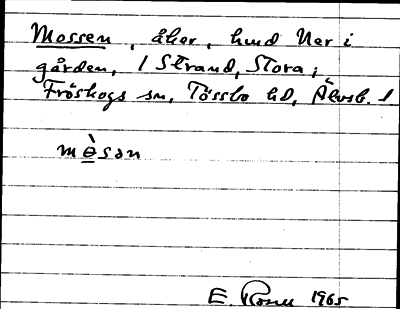 Mossen, åker, hmd Ner i
gården, 1 Strand, Stora;
Fröskogs sn, Tössbo hd, Älvsb. l
mòsən
E. Rosell 1965